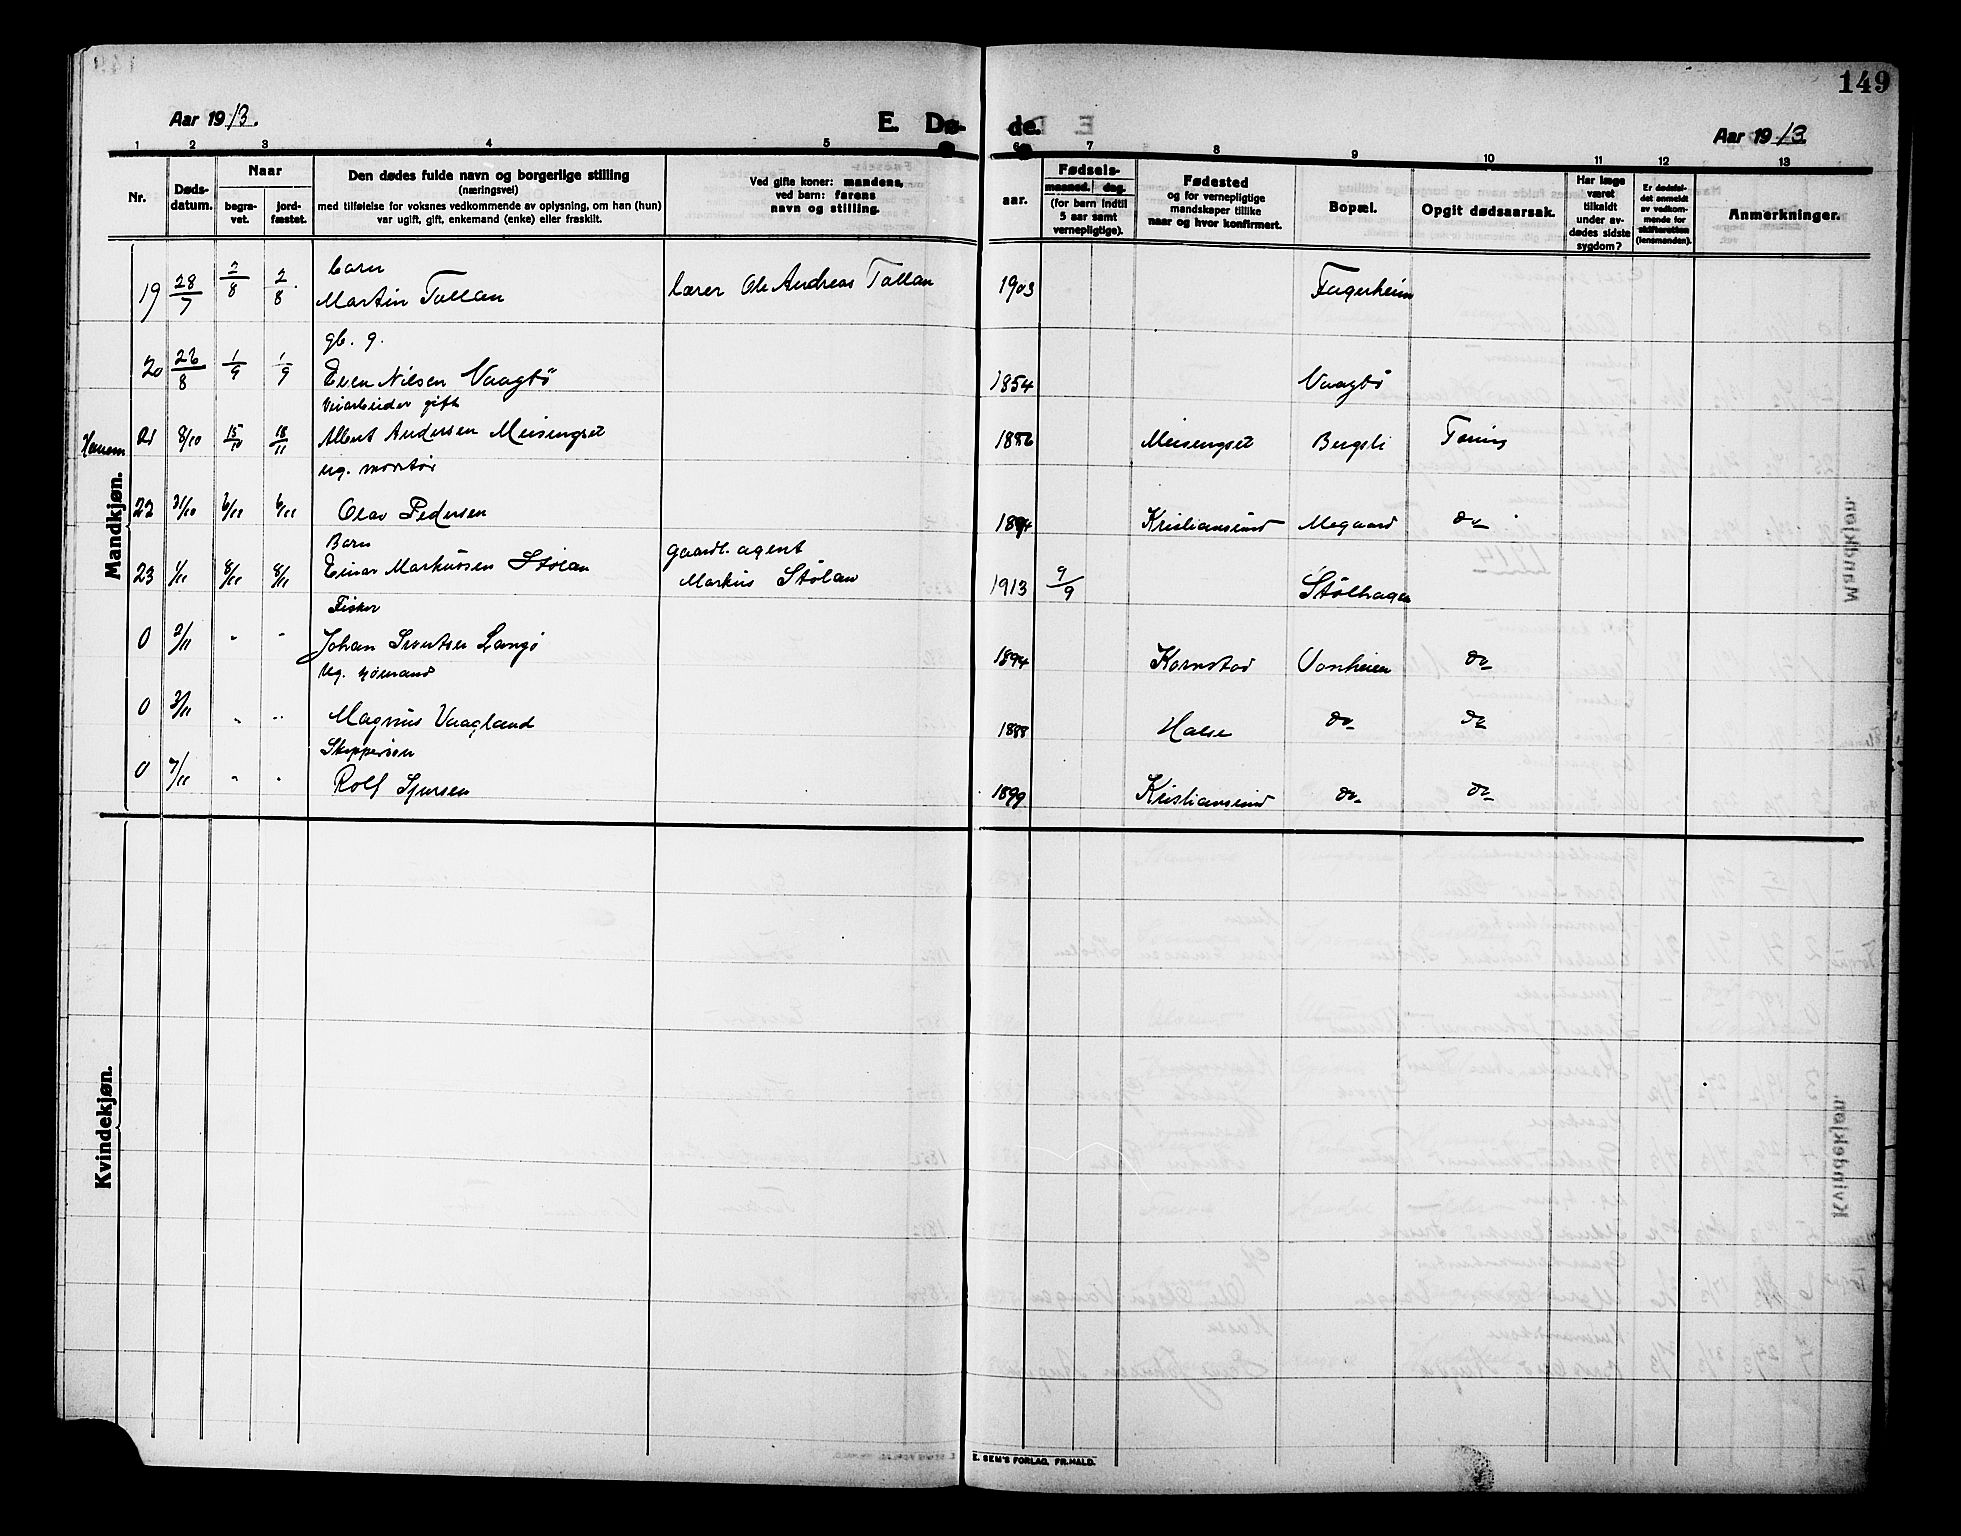 149
Aar 1913.
E. Dø-
de.
Aar 1913
1 2 3 4 5 6 7 8 9 10 11 12 13
Nr.
Døds-
datum.
Naar
begra-
vet.
jord-
fæstet.
Den dødes fulde navn og borgerlige stilling
(næringsvei)
med tilføielse for voksnes vedkommende av oplysning, om han (hun)
var ugift, gift, enkemand (enke) eller fraskilt.
Ved gifte koner: mandens,
ved barn: farens
navn og stilling.
aar.
Fødsels-
maaned. dag.
(for barn indtil
5 aar samt
vernepligtige).
Fødested
og for vernepligtige
mandskaper tillike
naar og hvor konfirmert.
Bopæl.
Opgit dødsaarsak.
Har læge
været
tilkaldt
under av-
dødes sidste
sygdom?
Er dødsfal-
det anmeldt
av vedkom-
mende for
skifteretten
(lensmanden).
Anmerkninger.
Mandkjøn.
barn
19 28/7 2/8 2/8. Martin Tallan lærer Ole Andreas Tallan 1903 Fagerheim
gb. g.
20 26/8 1/9 1/9 Even Nilsen Vaagbø 1854 Vaagbø
Veiarbeider gift
21 8/10 15/10 18/11 Albert Andersen Meisingset 1886 Meisingset Bergsli
ug. montør
22 31/10 6/11 6/11 Olav Pedersen 1894 Kristiansund Megaard do
Barn gaardb. agent
23 1/11 8/11 8/11 Einar Markussen Stølan Markus Stølan 1913 9/9 Stølhagen
Fisker
0 2/11 " " Johan Langø 1894 Kornstad do
Ug.
0 3/11 " " Magnus Vaagland 1888 Halse do do
0 7/11 " " Rolf Sjursen 1899 Kristiansund do do
Kvindekjøn.
E. SEM'S FORLAG, FR.HALD.